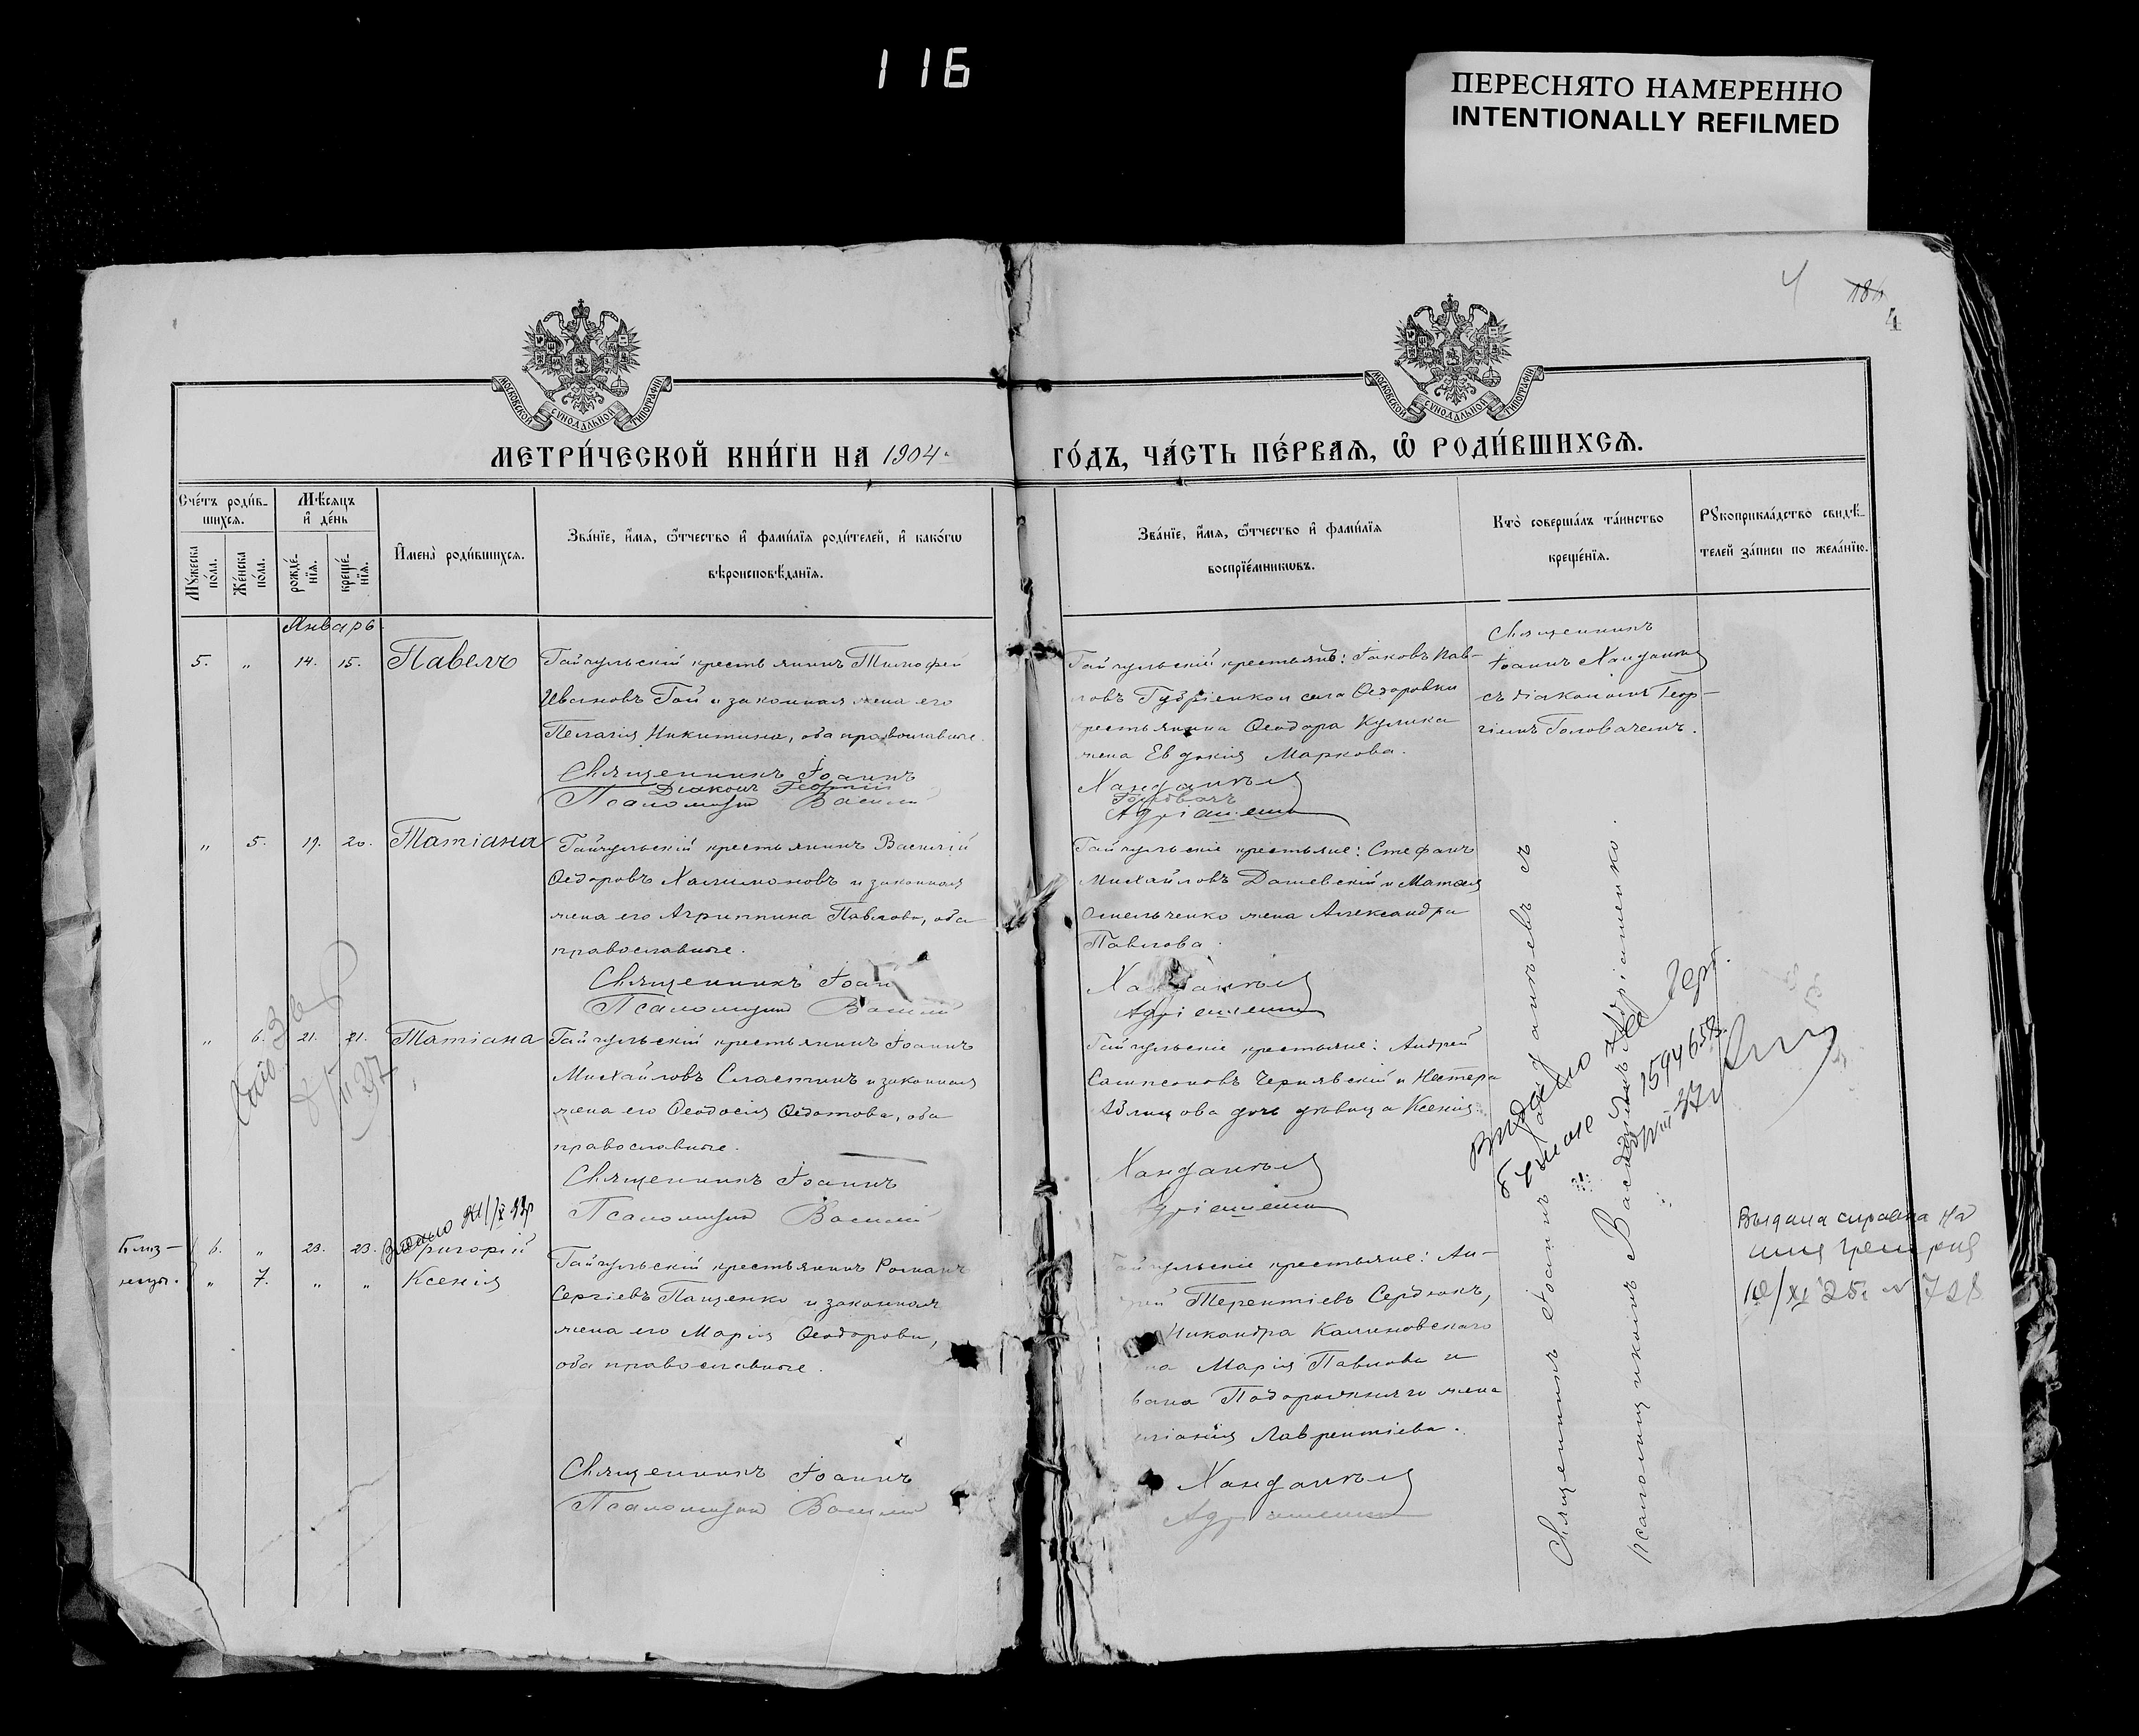 116
ПЕРЕСНЯТО НАМЕРЕННО
INTENTIONALLY REFILMED
4
4
МОСКОВСКОЙ СѴНОДАЛЬНОЙ ТИПОГРАФІИ
МОСКОВСКОЙ СѴНОДАЛЬНОЙ ТИПОГРАФІИ
МЕТРИ́ЧЕСКОЙ КНИ́ГИ НА 1904
ГО́ДЪ, ЧА́СТЬ ПЕ́РВАѦ, Ѡ РОДИ́ВШИХСѦ.
Сче́тъ роди́в-
шихсѧ.
Мꙋ́жеска по́ла.
Же́нска по́ла.
Мѣ́сѧцъ
и҆ де́нь
рожде́-
нїѧ.
креще́-
нїѧ.
И҆мена̀ роди́вшихсѧ.
Зва́нїе, и҆́мѧ, ѻ҆́тчество и҆ фами́лїѧ роди́телей, и҆ како́гѡ
вѣроисповѣ́данїѧ.
Зва́нїе, и҆́мѧ, ѻ҆́тчество и҆ фами́лїѧ
воспрїе́мникѡвъ.
Кто̀ соверша́лъ та́инство
креще́нїѧ.
Рꙋкоприкла́дство свидѣ́-
телей за́писи по жела́нїю.
Январь
5. " 14. 15. Павелъ
Гайчульскій крестьянинъ Тимофей
Ивановъ Гай и законная жена его
Пелагія Никитина, оба православные.
Священникъ Іоаннъ
Діаконъ Георгій
Псаломщикъ Василій
Гайчульскій крестьянинъ: Іаковъ Пав-
ловъ Губріенко и села Ѳедоровки
крестьянина Ѳеодора Кулика
жена Евдокія Маркова.
Ханданѣев
Головачъ
Адріашенко
Священникъ
Іоаннъ Ханданѣев
съ діакономъ Геор-
гіемъ Головачемъ.
" 5. 19. 20. Татіана
Гайчульскій крестьянинъ Василій
Ѳедоровъ Халимоновъ и законная
жена его Агриппина Павлова, оба
православные.
Священникъ Іоан
Псаломщикъ Василій
Гайчульскіе крестьяне: Стефанъ
Михайловъ Дашевскій и Матѳея
Омельченко жена Александра
Павлова.
Ханданѣев
Адріашенко
" 6. 21. 21. Татіана
Гайчульскій крестьянинъ Іоаннъ
Михайловъ Сластинъ и законная
жена его Ѳеодосія Ѳедотова, оба
православные.
Священникъ Іоаннъ
Псаломщикъ Василій
Гайчульскіе крестьяне: Андрей
Сампсоновъ Чернявскій и Нестера
дочь дѣвица Ксенія.
Ханданѣев
Адріашенко
Близ-
нецы.
6. " 23. 23. Григорій
" 7. " " Ксенія
Видано
Гайчульскій крестьянинъ Романъ
Сергіевъ Пащенко и законная
жена его Марія Ѳеодорова,
оба православные.
Священникъ Іоаннъ
Псаломщикъ Василій
Гайчульскіе крестьяне: Ан-
Терентіевъ Сердюкъ,
Никандра Калиновскаго
Марія Павлова и
вана Подорожняго жена
Лаврентіева.
Ханданѣев
Адріашенко
Священникъ Іоаннъ Ханданѣевъ съ
псаломщикомъ Василіемъ Адріашенко.
Видано
Выдана справка на
имя Григорія
10/XI 25г. N 728